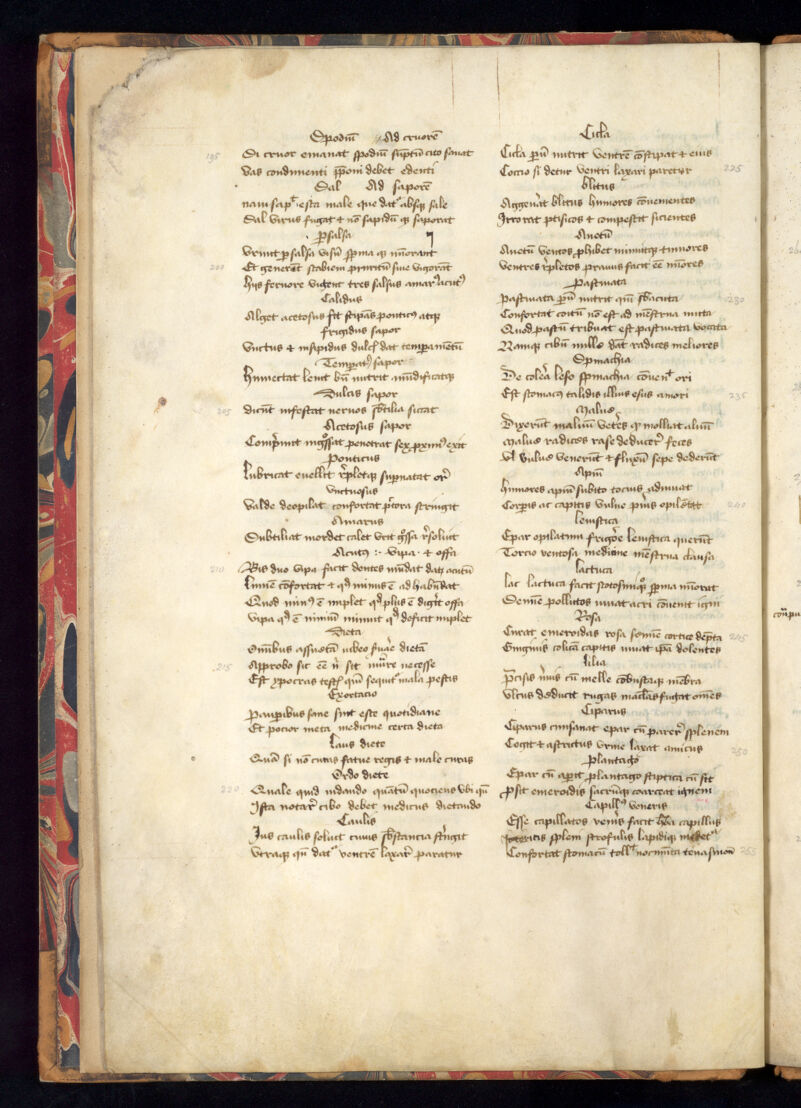 Spodiū Ad cruorē
195 Si cruor emanat spodiū sūptū cito sanat
Vas condimenti p̄poni debet edenti
Sal Ad saporē
nam sapit esca male que datur absq; sale
Sal virus fugat et nō sapidū q; saporat
Psalsa
Vrunt psalsa visū spma q; minorant
200 Et generāt scabiem pruritū siue vigorāt
hijs feruore vigent tres salsus amar9 acut9
Calidus
Alget acetosus sic stipās pontic9 atq;
frigidus sapor
Vnctus et insipidus dulc dat temperamētū
Temperat9 sapor
humectat lenit bn̄ nutrit mūdificatq;
Dulcis sapor
205 dicūt infestat neruos sbtilia siccat
Acetosus sapor
Comprimit ingssat penetrat sep pximus exit
Ponticus
Lubricat euellit rpletq; supnatat ori
Vnctuosus
Valde deopilat confortat pctora stringit
Amarus
Subtiliat mordet calet vrit gssa rsoluit
Acutus :· vipa · et offa
210 Bis duo vipa facit dentes mūdat dat acutū
Lumē cōfortat et qd minus ē ad habūdat
Quod min9 ē implet qd plus ē digerit offa
Vipa qd ē nimiū minuit qd deficit implet
Dieta
Omnibus assuetā iubeo seruare dietā
215 Approbo sic eē ni sit mutare necesse
Est ypocras testis qm̄ sequitur mala pestis
Exortacio
Pauperibus sane sint este quotidiane
Et pocior meta medicine certa dieta
Laus diete
Quā si nō curas fatue regis et male curas
Ordo diete
220 Quale quid ndando quātū quociens vbi qn̄
Ista notare cibo debet medicus dietando
Caulis
Ius caulis soluit cuius sbstancia stringit
Vtraq; qn̄ datur ventrē laxare paratur
Cicla
Cicla pū nutrit ventrē cōstipat et eius
Coccio si detur ventri laxari paretur 225
blitus
Aggerat blitus humores cōuenientes
Irrorat ptisicos et compescit sicientes
Anetū
Anetū ventos phibet minuitq; tumores
Ventres rpletos prauus facit eē minores
Pastinata
Pastinata pū nutrit qm̄ sbacuta 230
Confortat coitū nō est ad mēstrua muta
Quod pastū tribuat est pastinata vocata
Namq; cibū nullo dat radices meliores
Spinachia
De colera leso spinachia cōuenit ori
Est stomacus calidis illius esus amori 235
Malue
Dixerūt maluā veters qr molliat aluū
Malue radices rase deducere feces
Vl vulue venerūt et fluxū sepe dederūt
Apiū
humores apiū subito tocius adiuuat
Corporis ac capitis vulue prius opiletat 240
leuistica
Epar opilatum frigore leuistica querūt
Torcio ventosa medicine mēstrua clausa
lactuca
lac lactuca facit scotosimq; spma minorat
Semē pollutos iuuat acri cōuenit igni
Rosa
Curat emeroidas rosa semine cortice dēpta 245
Gingiuis colicā capitis iuuat ipa dolentes
lilia
Precisis neruis cū melle cōbustaq; mēbra
Vlcus deducit rugas maclas fugat omēs
Ciparus
Ciparus cui sanat epar cū parere splenem
Cogit et astrictus vrine laxat amicus 250
Plantago
Epar cū aperit plantago stiptica cū sit
Prosit emeroidis sacrūq; coarceat ignem
Capillus veneris
Esse capillatos venis facit hūa capillus
Ictericis splen strofulis lapidiq; medetur
Confortat stomacū tollit nocumēta tenasmon 255